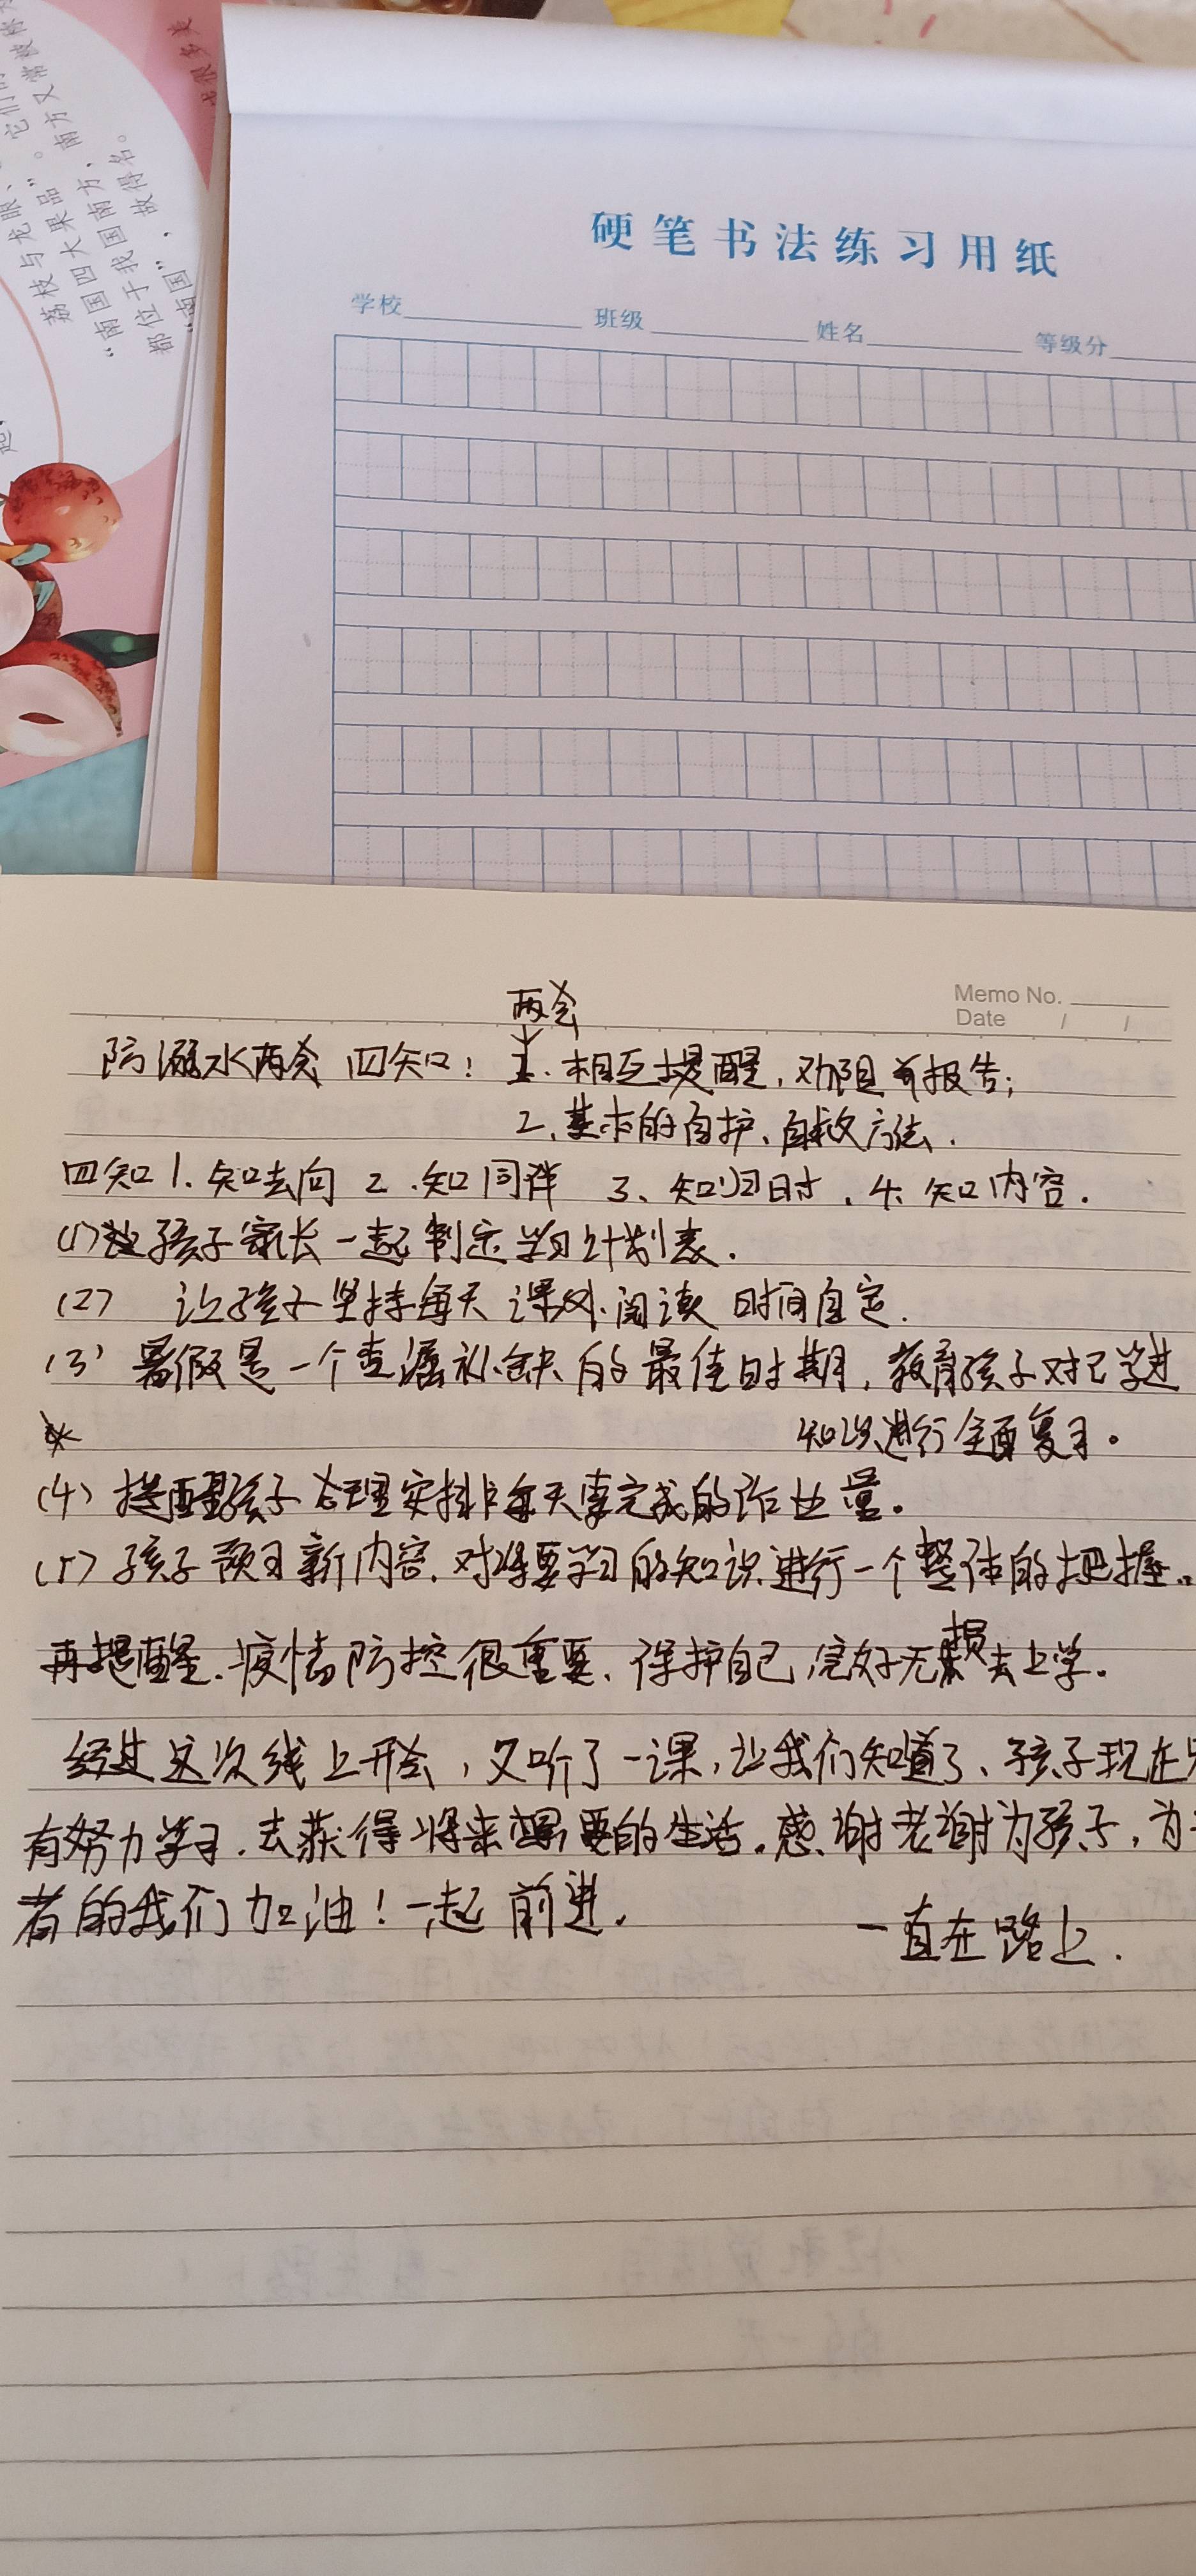 荔枝与龙眼、
它们
"南国四大果品"。南方又常被称
都位于我国南方，
"南国"，故得名。
硬笔书法练习用纸
学校 班级 姓名 等级分
Memo No.
Date / /
两会
防溺水两会 四知: 1.相互提醒,劝阻有报告;
2.基本的自护、自救方法.
四知 1.知去向 2.知同伴 3、知归时,4、知内容.
(1)让孩子家长一起制定学习计划表.
(2) 让孩子坚持每天课外阅读 时间自定.
(3) 暑假是一个查漏补缺的最佳时期,教育孩子对已学过
知识进行全面复习。
(4)提醒孩子合理安排每天要完成的作业量。
(5)孩子预习新内容.对将要学习的知识进行一个整体的把握。
再提醒.疫情防控很重要、保护自己,完好无损去上学.
经过这次线上开会,又听了一课,让我们知道了、孩子现在只
有努力学习.去获得将来想要的生活。感谢老谢为孩子,为
者的我们加油!一起前进.
一直在路上.